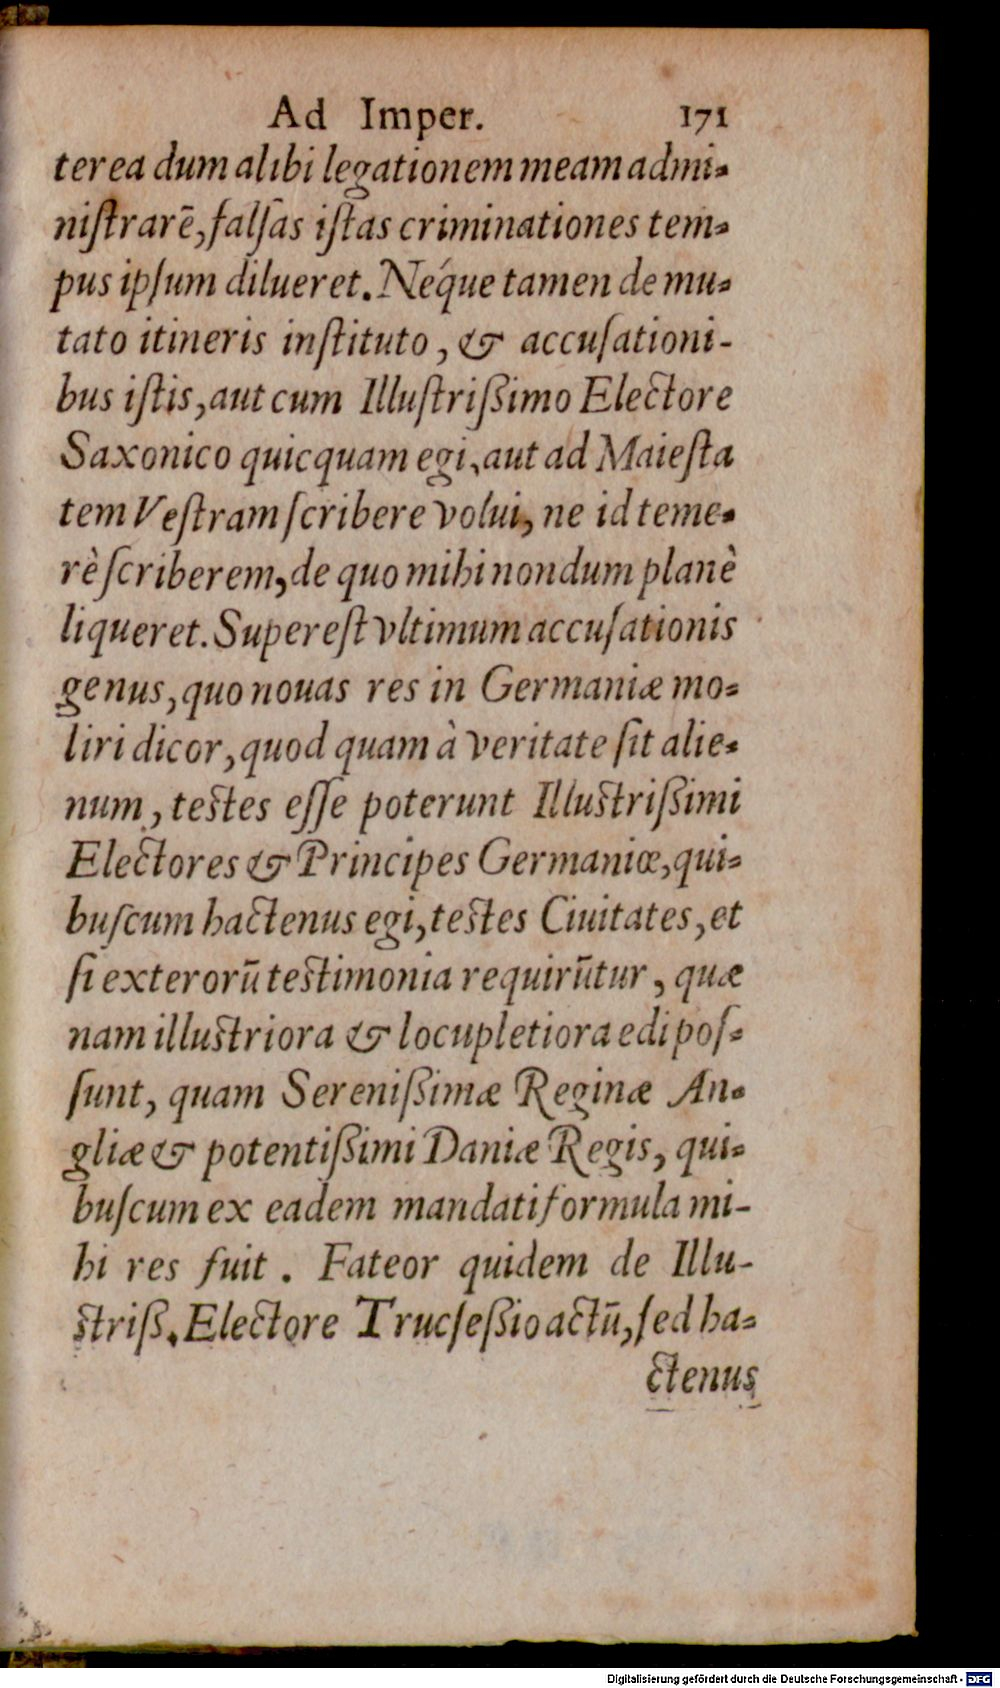 Ad Imper. 171
terea dum alibi legationem meam admi-
niſtrarē, falſas iſtas criminationes tem-
pus ipſum dilueret. Neq́ue tamen de mu-
tato itineris inſtituto, & accuſationi-
bus iſtis, aut cum Illuſtrißimo Electore
Saxonico quicquam egi, aut ad Maieſta
tem Veſtram ſcribere volui, ne id teme-
rè ſcriberem, de quo mihi nondum planè
liqueret. Supereſt vltimum accuſationis
genus, quo nouas res in Germaniæ mo-
liri dicor, quod quam à veritate ſit alie-
num, testes eſſe poterunt Illustrißimi
Electores & Principes Germaniæ, qui-
buſcum hactenus egi, testes Ciuitates, et
ſi exterorū testimonia requirūtur, quæ
nam illustriora & locupletiora edi poſ-
ſunt, quam Sereniſſimæ Reginæ An-
gliæ & potentißimi Daniæ Regis, qui-
buſcum ex eadem mandati formula mi-
hi res fuit. Fateor quidem de Illu-
striß. Electore Trucſeßio actū, ſed ha-
ctenus
Digitalisierung gefördert durch die Deutsche Forschungsgemeinschaft - DFG